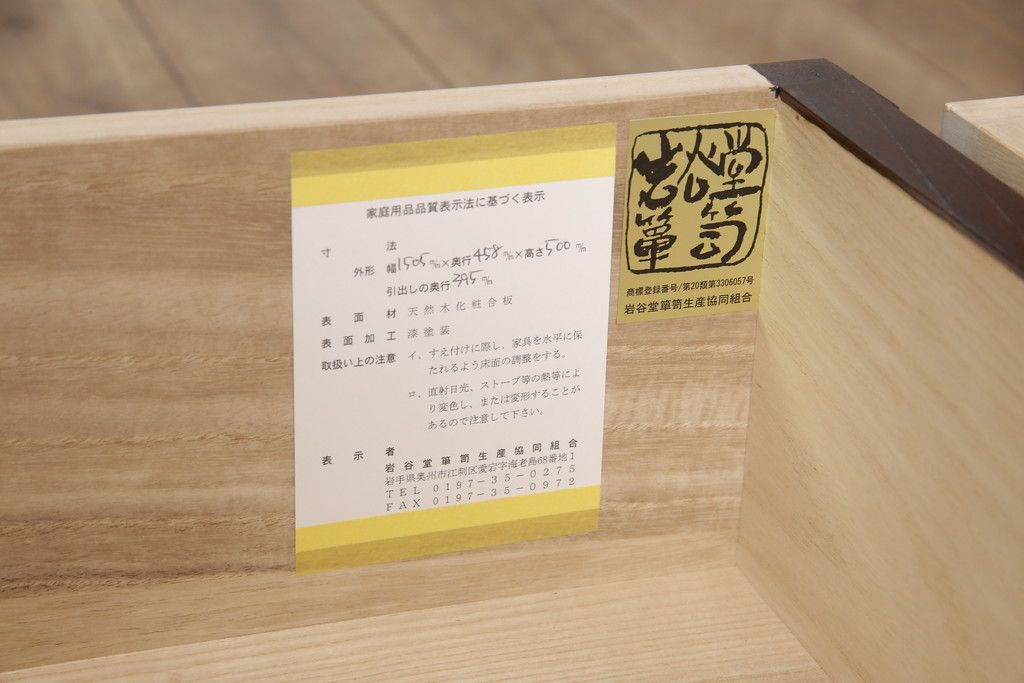 家庭用品品質表示法に基づく表示
寸法
外形 幅1505㎜×奥行458㎜×高さ500㎜
引出しの奥行395㎜
表面材 天然木化粧合板
表面加工 漆塗装
取扱い上の注意 イ、すえ付けに際し、家具を水平に保
たれるよう床面の調整をする。
ロ、直射日光、ストーブ等の熱等によ
り変色し、または変形することが
あるので注意して下さい。
表示者
岩谷堂箪笥生産協同組合
岩手県奥州市江刺区愛宕字海老島68番地1
TEL 0197-35-0275
FAX 0197-35-0972
岩谷堂箪笥
商標登録番号/第20類第3306057号
岩谷堂箪笥生産協同組合